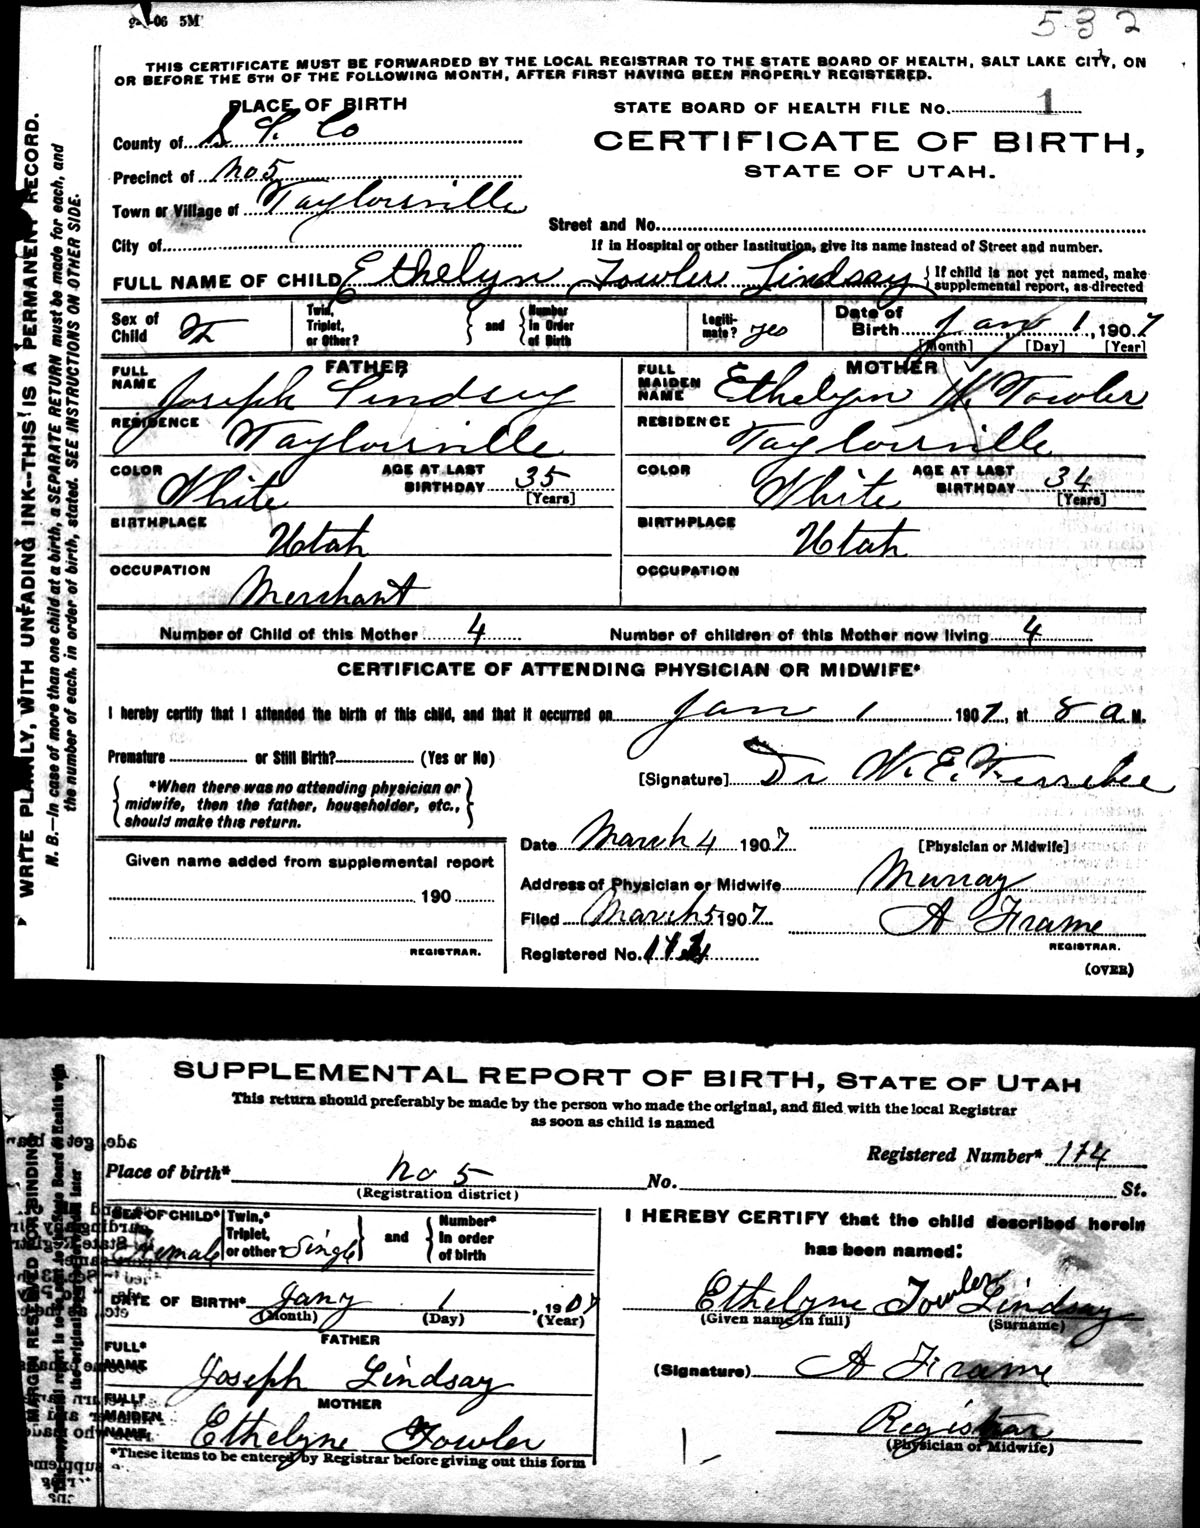 06 5M
532
THIS CERTIFICATE MUST BE FORWARDED BY THE LOCAL REGISTRAR TO THE STATE BOARD OF HEALTH, SALT LAKE CITY, ON
OR BEFORE THE 5TH OF THE FOLLOWING MONTH, AFTER FIRST HAVING BEEN PROPERLY REGISTERED.
WRITE PLAINLY, WITH UNFADING INK--THIS IS A PERMANENT RECORD.
N. B.—In case of more than one child at a birth, a SEPARATE RETURN must be made for each, and
the number of each, in order of birth, stated. SEE INSTRUCTIONS ON OTHER SIDE.
PLACE OF BIRTH
County of S L Co
Precinct of No 5
Town or Village of Taylorsville
City of
STATE BOARD OF HEALTH FILE No. 1
CERTIFICATE OF BIRTH,
STATE OF UTAH.
Street and No.
If in Hospital or other Institution, give its name instead of Street and number.
FULL NAME OF CHILD Ethelyn Fowler Lindsay { If child is not yet named, make
supplemental report, as directed
Sex of Child F Twin, Triplet, or Other? } and { Number in Order of Birth Legiti-mate? yes Date of Birth Jan 1, 1907
[Month] [Day] [Year]
FATHER
FULL NAME Joseph Lindsay
RESIDENCE Taylorsville
COLOR White AGE AT LAST BIRTHDAY 35
[Years]
BIRTHPLACE Utah
OCCUPATION Merchant
MOTHER
FULL MAIDEN NAME Ethelyn W. Fowler
RESIDENCE Taylorsville
COLOR White AGE AT LAST BIRTHDAY 34
[Years]
BIRTHPLACE Utah
OCCUPATION
Number of Child of this Mother 4 Number of children of this Mother now living 4
CERTIFICATE OF ATTENDING PHYSICIAN OR MIDWIFE*
I hereby certify that I attended the birth of this child, and that it occurred on Jan 1 1907, at 8 a M.
Premature or Still Birth? (Yes or No)
*When there was no attending physician or
midwife, then the father, householder, etc.,
should make this return.
[Signature] Dr W. E. Ferrebee
Date March 4 1907 [Physician or Midwife]
Address of Physician or Midwife Murray
Filed March 5 1907 A Frame
Registered No. REGISTRAR.
(OVER)
Given name added from supplemental report
190
REGISTRAR.
SUPPLEMENTAL REPORT OF BIRTH, STATE OF UTAH
This return should preferably be made by the person who made the original, and filed with the local Registrar
as soon as child is named
Registered Number* 174
Place of birth* No 5 No. St.
(Registration district)
MARGIN RESERVED FOR BINDING
SEX OF CHILD* Female Twin,* Triplet, or other Single } and { Number* In order of birth
DATE OF BIRTH* Jany 1, 1907
(Month) (Day) (Year)
FATHER
FULL* NAME Joseph Lindsay
MOTHER
FULL* MAIDEN NAME Ethelyne Fowler
*These items to be entered by Registrar before giving out this form
I HEREBY CERTIFY that the child described herein
has been named:
Ethelyne Fowler Lindsay
(Given name in full) (Surname)
(Signature) A Frame
Registrar
(Physician or Midwife)